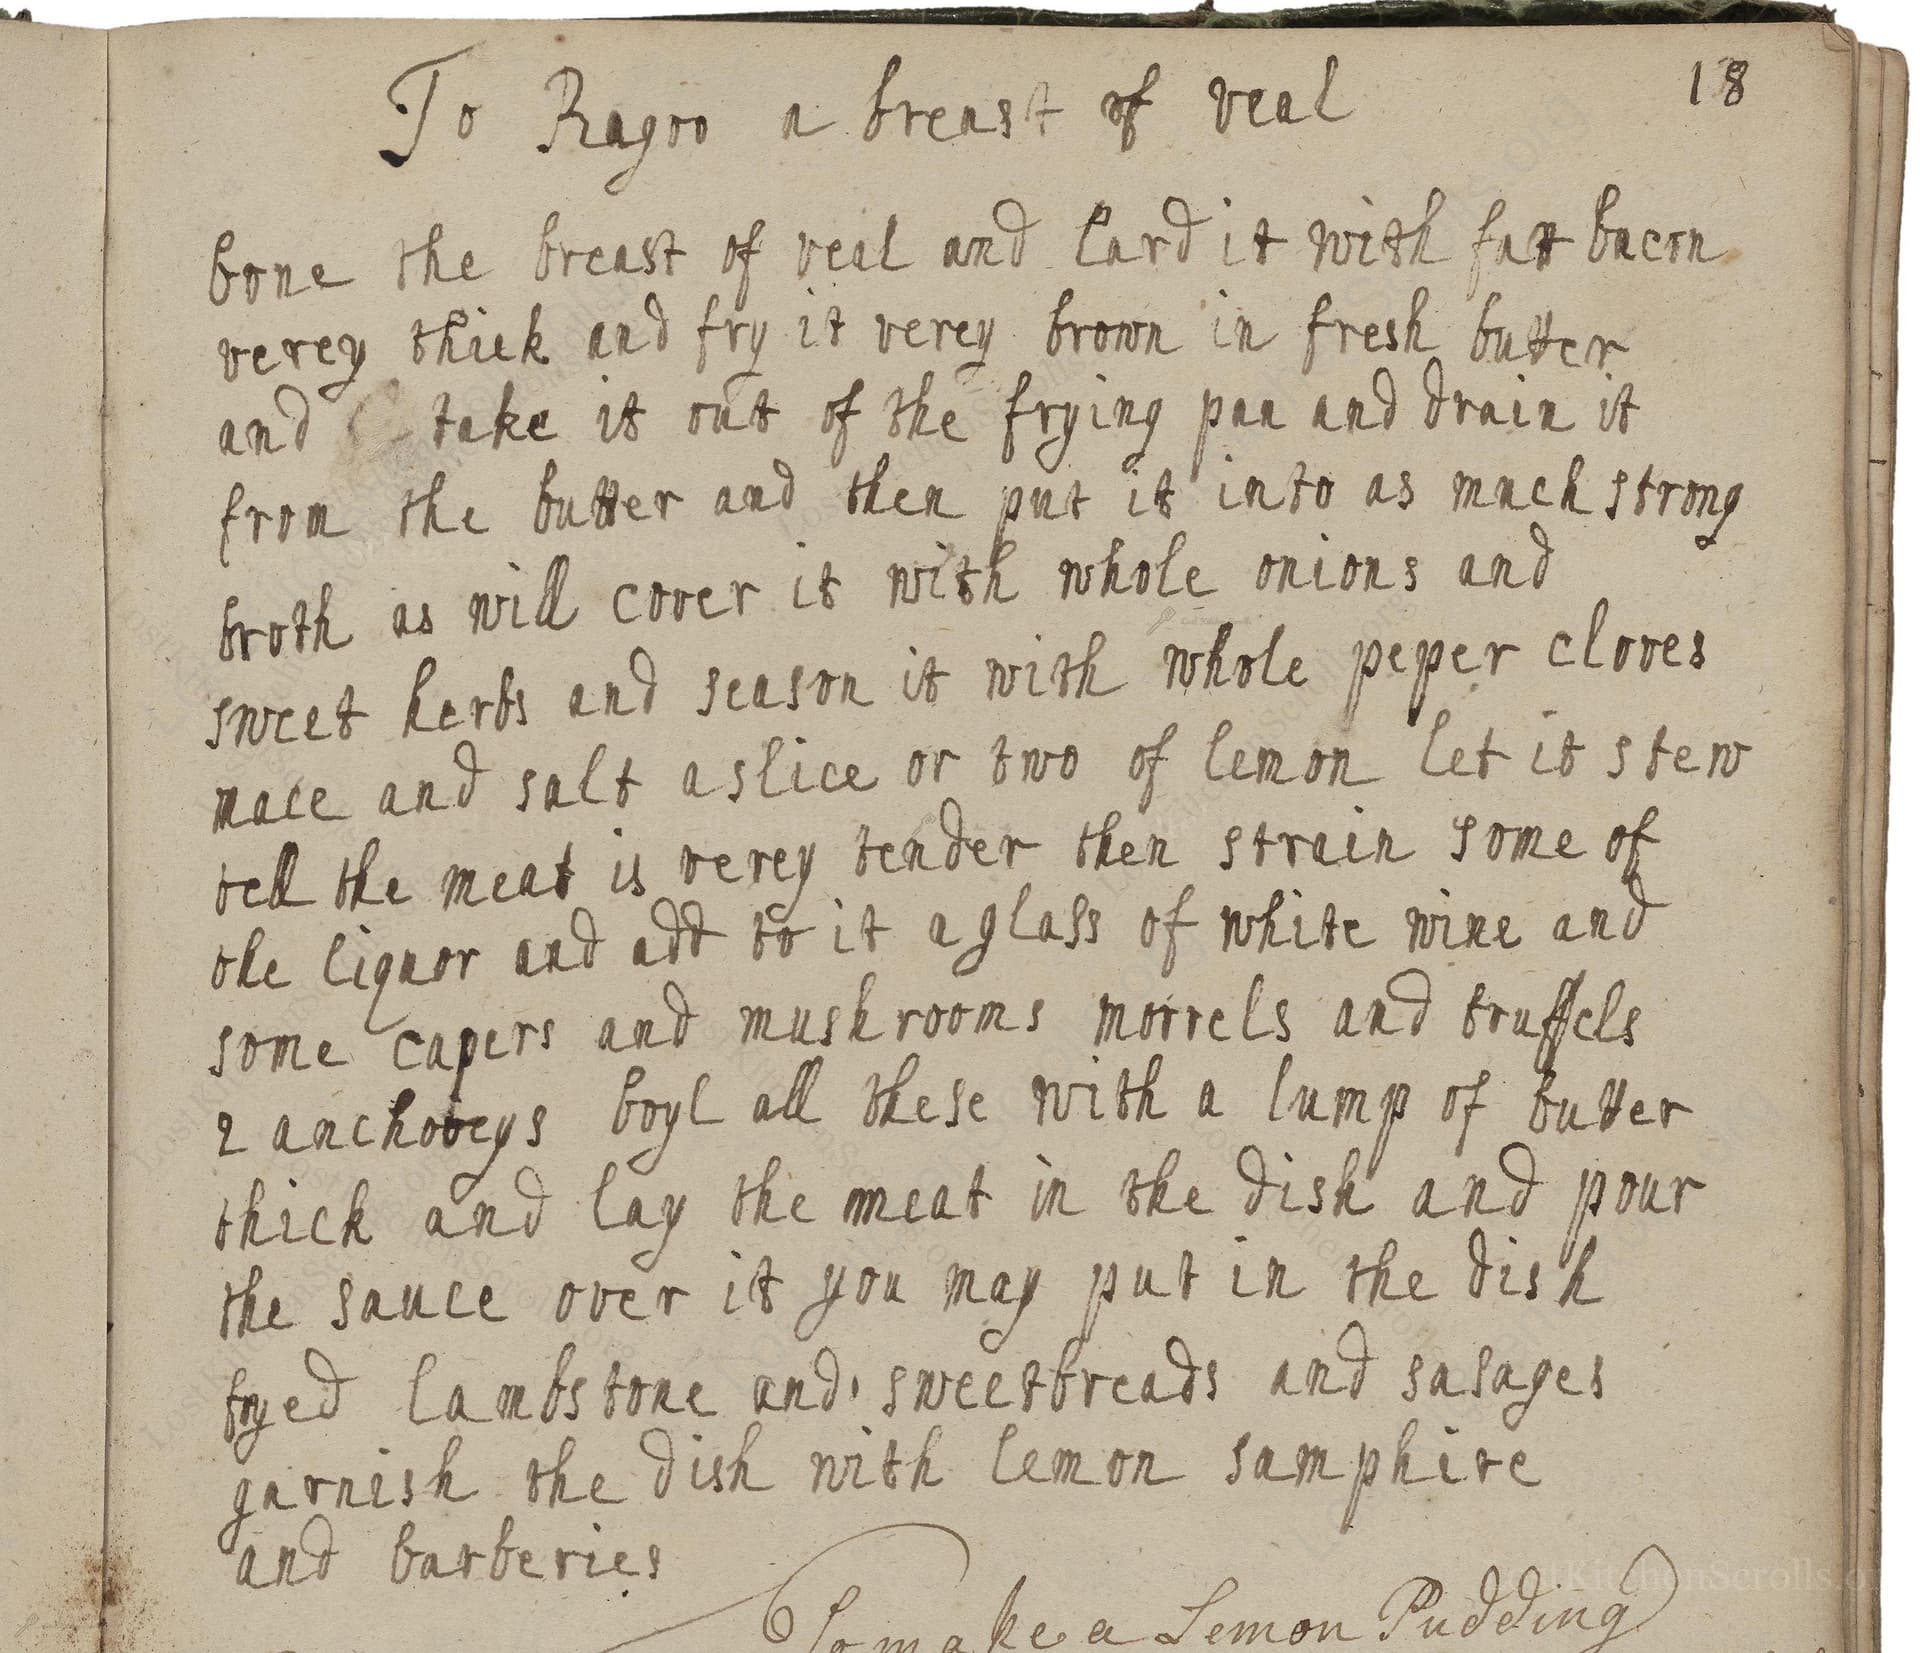 18
To Ragoo a breast of veal
bone the breast of veal and lard it with fatt bacon
verey thick and fry it verey brown in fresh butter
and take it out of the frying pan and drain it
from the butter and then put it into as much strong
broth as will cover it with whole onions and
sweet herbs and season it with whole peper cloves
mace and salt a slice or two of lemon let it stew
tell the meat is verey tender then strain some of
the liquor and add to it a glass of white wine and
some capers and mushrooms morrels and truffels
2 anchoveys boyl all these with a lump of butter
thick and lay the meat in the dish and pour
the sauce over it you may put in the dish
fryed lambstone and sweetbreads and sasages
garnish the dish with lemon samphire
and barberies
To make a Lemon Pudding